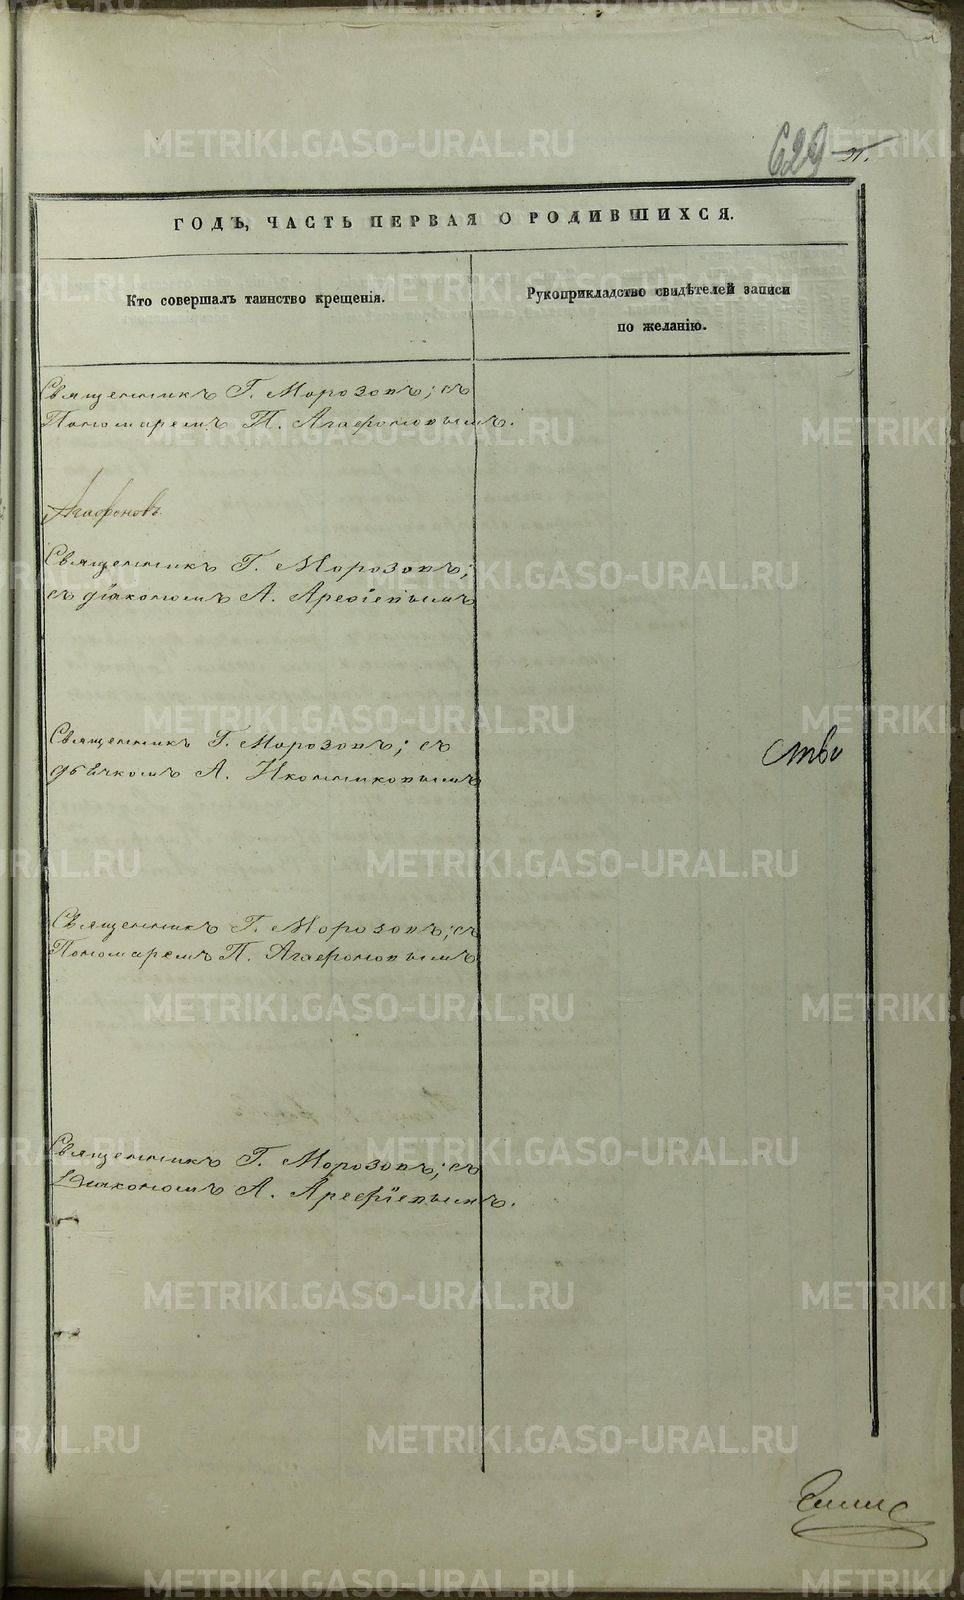 629
ГОДЪ, ЧАСТЬ ПЕРВАЯ О РОДИВШИХСЯ.
Кто совершалъ таинство крещенія.
Рукоприкладство свидѣтелей записи
по желанію.
Священникъ Г. Морозовъ; съ
Пономаремъ П. Агафоновымъ.
Агафоновъ
Священникъ Г. Морозовъ;
съ діакономъ А. Арефіевымъ
Священникъ Г. Морозовъ; съ
дьячкомъ А. Иконниковымъ
Священникъ Г. Морозовъ; съ
Пономаремъ П. Агафоновымъ
Священникъ Г. Морозовъ; съ
Діакономъ А. Арефіевымъ.
METRIKI.GASO-URAL.RU